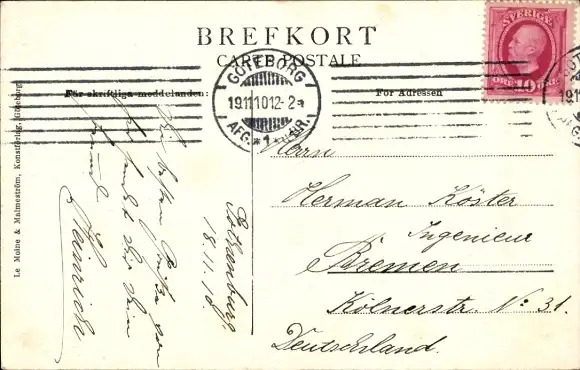 BREFKORT
CARTE POSTALE
SVERIGE
10 ÖRE
GÖTEBORG
19.11.10 12-2
AFG. * 1 * BR.
För skriftliga meddelanden:
For Adressen
Le Moine & Malmeström, Konstförlag, Göteborg
Gothenburg,
18.11.10.
Die besten Grüße von
Heinrich
Herrn
Herman Köster
Ingenieur
Bremen
Kölnerstr. No 31.
Deutschland.